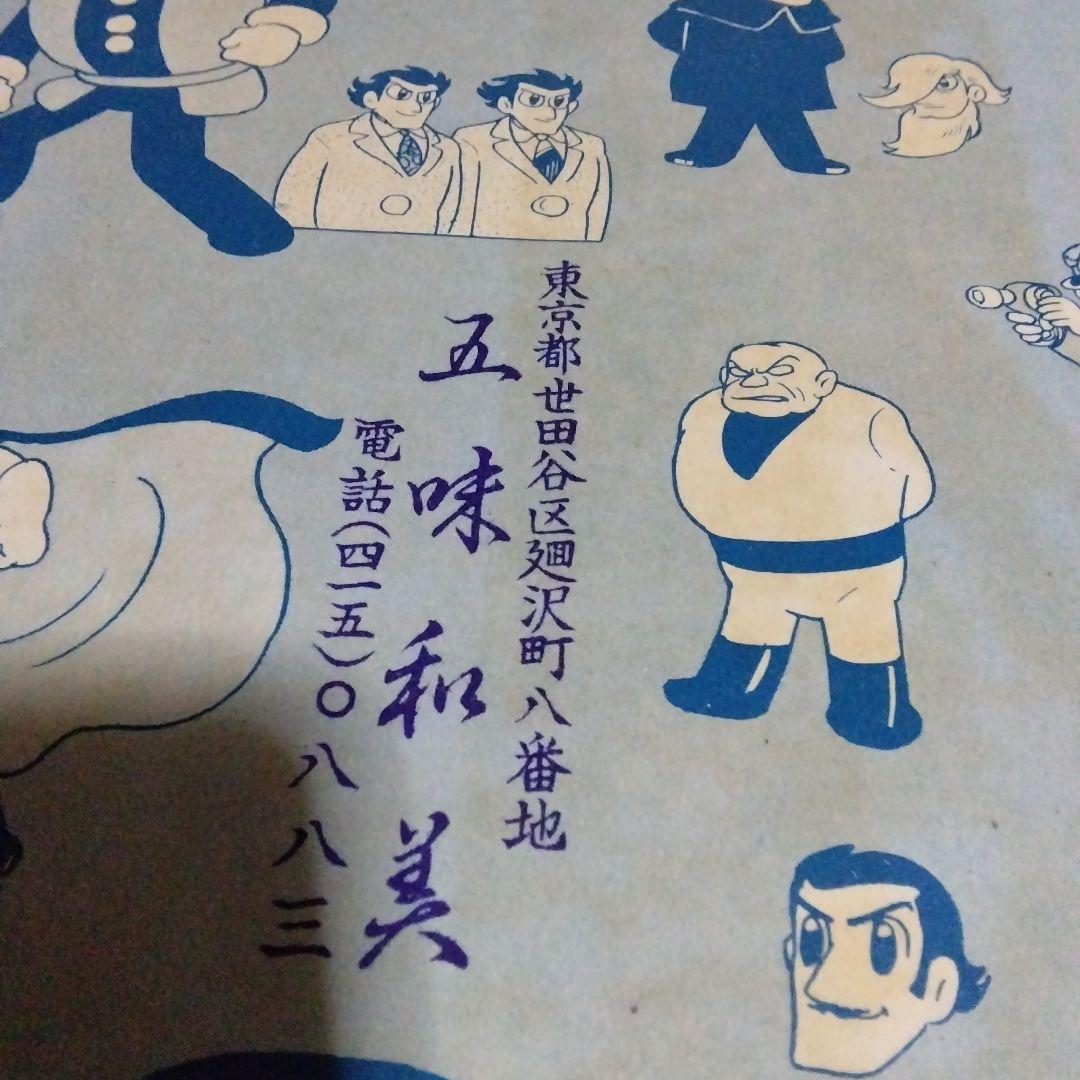 東京都世田谷区廻沢町八番地
五味和美
電話(四一五)〇八八三